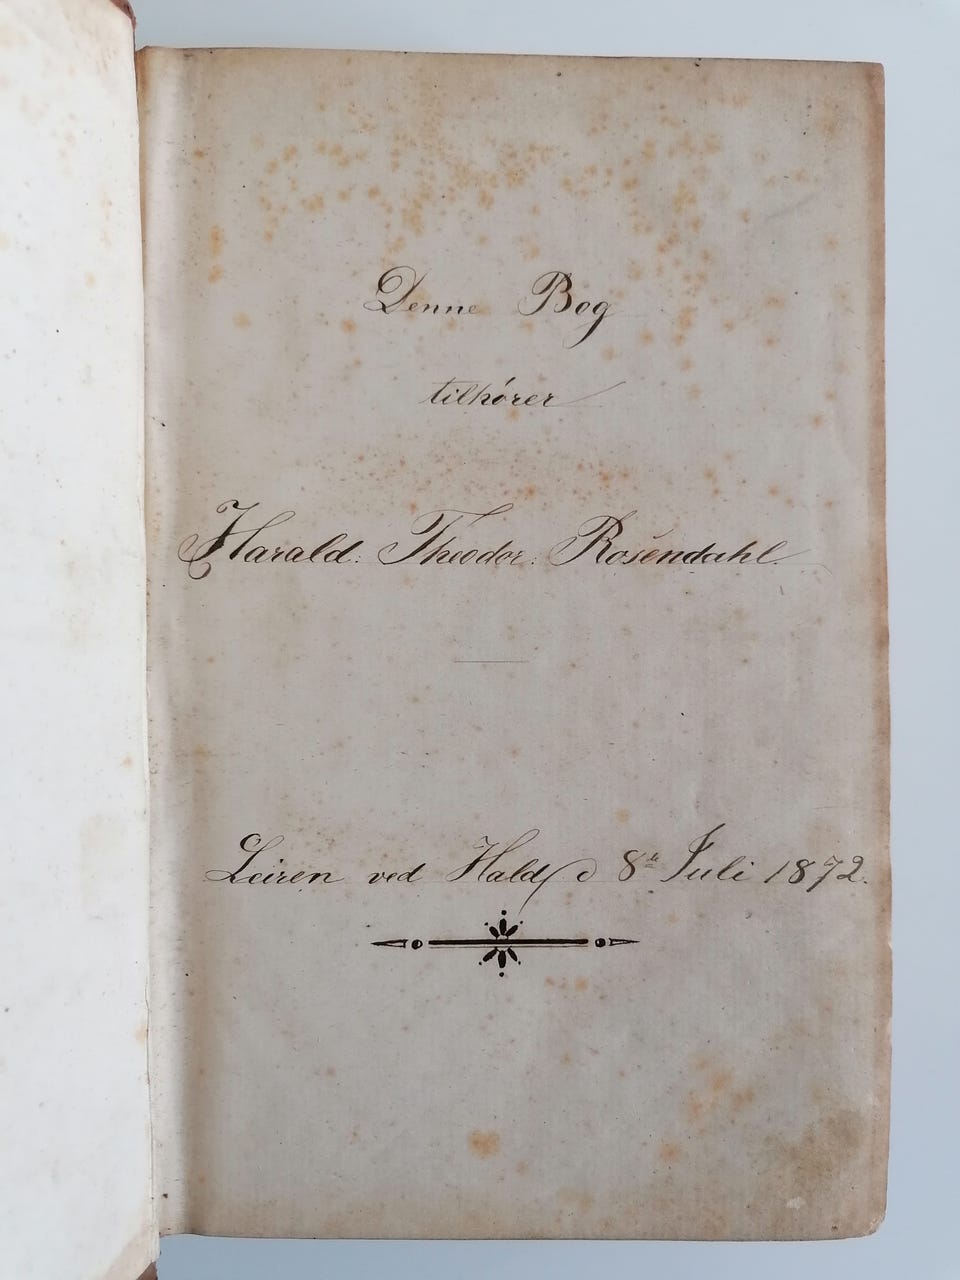 Denne Bog
tilhører
Harald: Theodor: Rosendahl.
Leiren ved Hald d 8de Juli 1872.